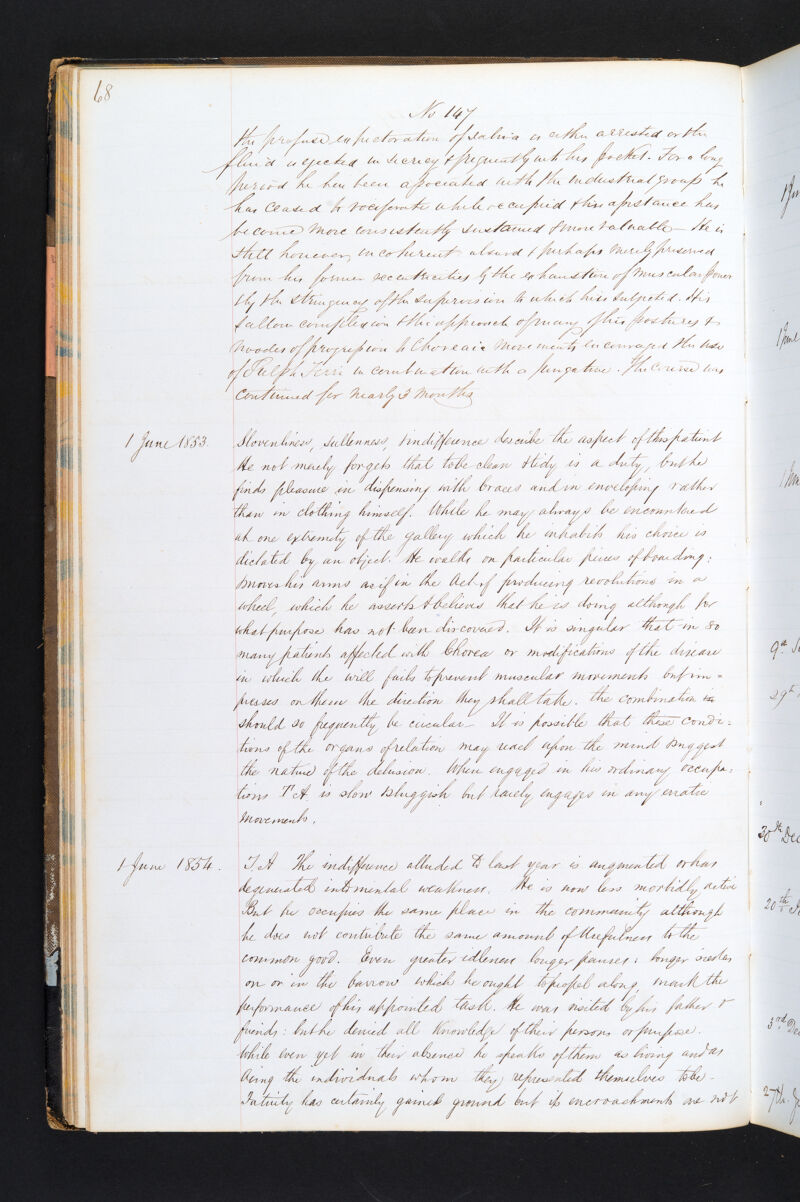 68
No 147
the profuse expectoration of saliva is either arrested or the
fluid is ejected in secrecy & frequently into his pocket. For a long
period he has been associated with the industrial group he
has ceased to vociferate while occupied & his assistance has
become more consistently sustained & more valuable – He is
still however, incoherent absurd & perhaps merely preserved
from his former eccentricities by the exhaustion of muscular power
& by the stringency of the supervision to which he is subjected. His
sallow complexion & the approach of many of his postures &
modes of progression to Choreaic movements encouraged the use
of Sulph Ferri in combination with a purgative. The course was
continued for nearly 3 months
1 June 1853. Slovenliness, sullenness, & indifference describe the aspect of this patient
He not merely forgets that to be clean & tidy is a duty, but he
finds pleasure in dispensing with braces and in enveloping rather
than in clothing himself. While he may always be encountered
at one extremity of the gallery which he inhabits his choice is
dictated by an object. He walks on particular pieces of boarding:
& moves his arms as if in the act of producing revolutions in a
wheel, which he asserts & believes that he is doing although for
what purpose has not been discovered. It is singular that in so
many patients affected with Chorea or modifications of the disease
in which the will fails to prevent muscular movements but im=
presses on them the direction they shall take. the combination
should so frequently be circular – It is possible that these condi=
tions of the organs of relation may react upon the mind & suggest
the nature of the delusion. When engaged in his ordinary occupa=
tions T. A. is slow & sluggish but rarely engages in any erratic
movements.
1 June 1854. T. A The indifference alluded to last year is augmented or has
degenerated into mental weakness. He is now less morbidly active
But he occupies the same place in the community although
he does not contribute the same amount of usefulness to the
common good. Even greater idleness longer pauses: longer siestas
on or in the barrow which he ought to propel along, mark the
performance of his appointed task. He was visited by his father &
friends: but he denied all knowledge of their persons or purpose.
While even yet in their absence he speaks of them as living and as
being the individuals whom they represented themselves to be –
Fatuity has certainly gained ground but its encroachments are not
9th
29th
30th Dec
20th
3rd De
27th